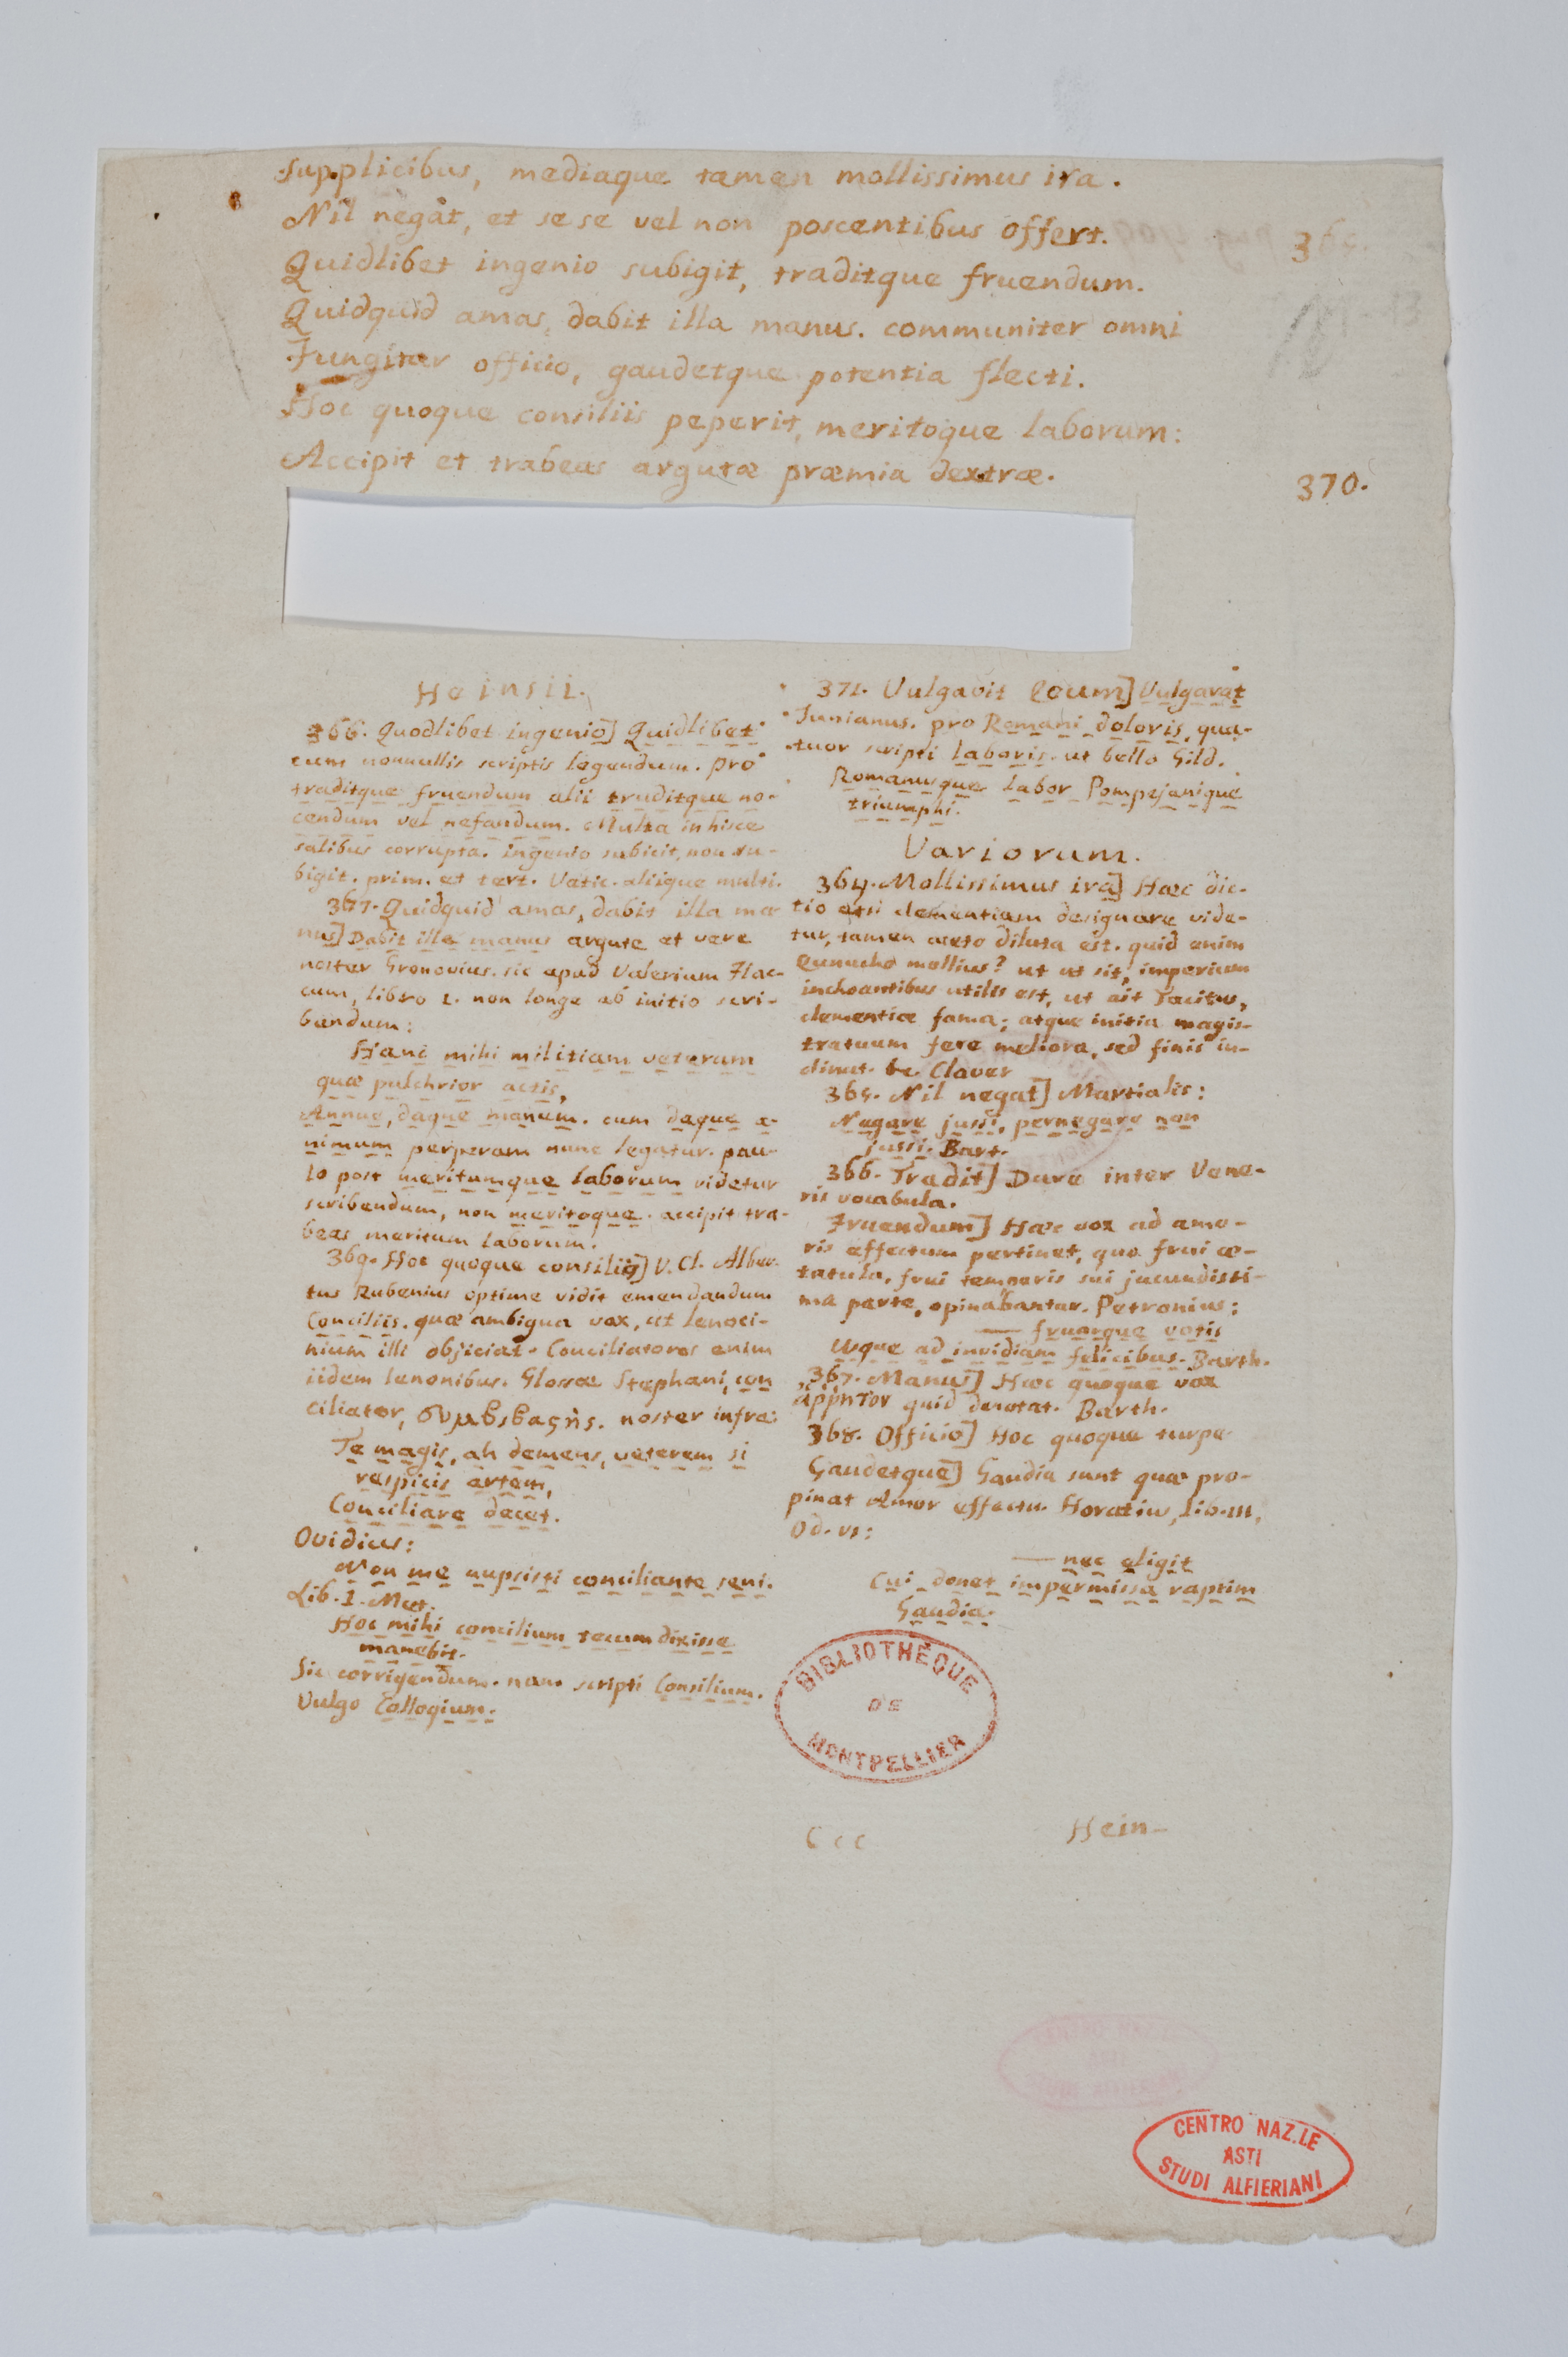 supplicibus, mediaque tamen mollissimus ira.
Nil negat, et sese vel non poscentibus offert.
365.
Quidlibet ingenio subigit, traditque fruendum.
Quidquid amas, dabit illa manus. communiter omni
Fungitur officio, gaudetque potentia flecti.
Hoc quoque consiliis peperit, meritoque laborum:
Accipit et trabeas argutæ præmia dextræ.
370.
Heinsii.
366. Quodlibet ingenio] Quidlibet
cum nonnullis scriptis legendum. pro
traditque fruendum alii truditque no-
cendum vel nefandum. Multa in hisce
salibus corrupta. ingenio subicit, non su-
bigit. prim. et tert. Vatic. aliique multi.
367. Quidquid amas, dabit illa ma
nus] Dabit illa manus argute et vere
noster Gronovius. sic apud Valerium Flac-
cum, libro 1. non longe ab initio scri-
bendum:
Hanc mihi militiam veterum
quæ pulchrior actis,
Annue, daque manum. cum daque a-
nimum perperam nunc legatur. pau-
lo post meritumque laborum videtur
scribendum, non meritoque. accipit tra-
beas meritum laborum.
369. Hoc quoque consiliis] V. Cl. Alber-
tus Rubenius optime vidit emendandum
Conciliis. quæ ambigua vox, ut lenoci-
nium illi objiciat. Conciliatores enim
iidem lenonibus. Glossæ Stephani, con
ciliator, συμβιβαςής. noster infra:
Te magis, ah demens, veterem si
respicis artem,
Conciliare decet.
Ovidius:
Non me nupsisti conciliante seni.
Lib. 1. Met.
Hoc mihi concilium tecum dixisse
manebit.
Sic corrigendum. nam scripti Consilium.
Vulgo Collogium.
371. Vulgavit locum] Vulgarat
Junianus. pro Romani doloris, qua-
tuor scripti laboris. ut bello Gild.
Romanusque labor Pompejanique
triumphi.
Variorum.
364. Mollissimus ira] Hæc dic-
tio etsi clementiam designare vide-
tur, tamen aceto diluta est. quid enim
Eunucho mollius? ut ut sit, imperium
inchoantibus utilis est, ut ait Tacitus,
clementiæ fama; atque initia magis-
tratuum fere meliora, sed finis in-
clinat. Claver
365. Nil negat] Martialis:
Negare jussi, pernegare non
jussi. Bart.
366. Tradit] Dare inter Vene-
ris vocabula.
Fruendum] Hæc vox ad amo-
ris effectum pertinet, quo frui æ-
tatula, frui temporis sui jucundissi-
ma parte, opinabantur. Petronius:
— fruorque votis
Usque ad invidiam felicibus. Barth.
367. Manus] Hæc quoque vox
ἄῤῥητον quid denotat. Barth.
368. Officio] Hoc quoque turpe
Gaudetque] Gaudia sunt quæ pro-
pinat Amor effectu. Horatius, lib. III,
Od. VI:
— nec eligit
Cui donet impermissa raptim
Gaudia.
BIBLIOTHÈQUE
DE
MONTPELLIER
Ccc
Hein-
CENTRO NAZ.LE
ASTI
STUDI ALFIERIANI